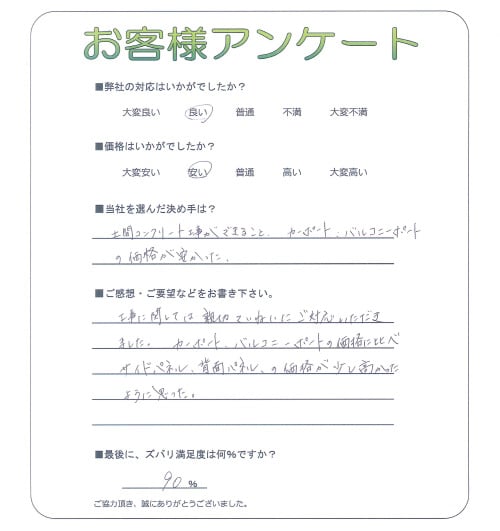 お客様アンケート
■弊社の対応はいかがでしたか?
大変良い 良い 普通 不満 大変不満
■価格はいかがでしたか?
大変安い 安い 普通 高い 大変高い
■当社を選んだ決め手は?
土間コンクリート工事ができること、カーポート、バルコニーポート
の価格が安かった、
■ご感想・ご要望などをお書き下さい。
工事に関しては親切ていねいにご対応いただき
ました。カーポート、バルコニーポートの価格に比べ
サイドパネル、背面パネル、の価格が少し高かった
ように思った。
■最後に、ズバリ満足度は何%ですか?
90 %
ご協力頂き、誠にありがとうございました。